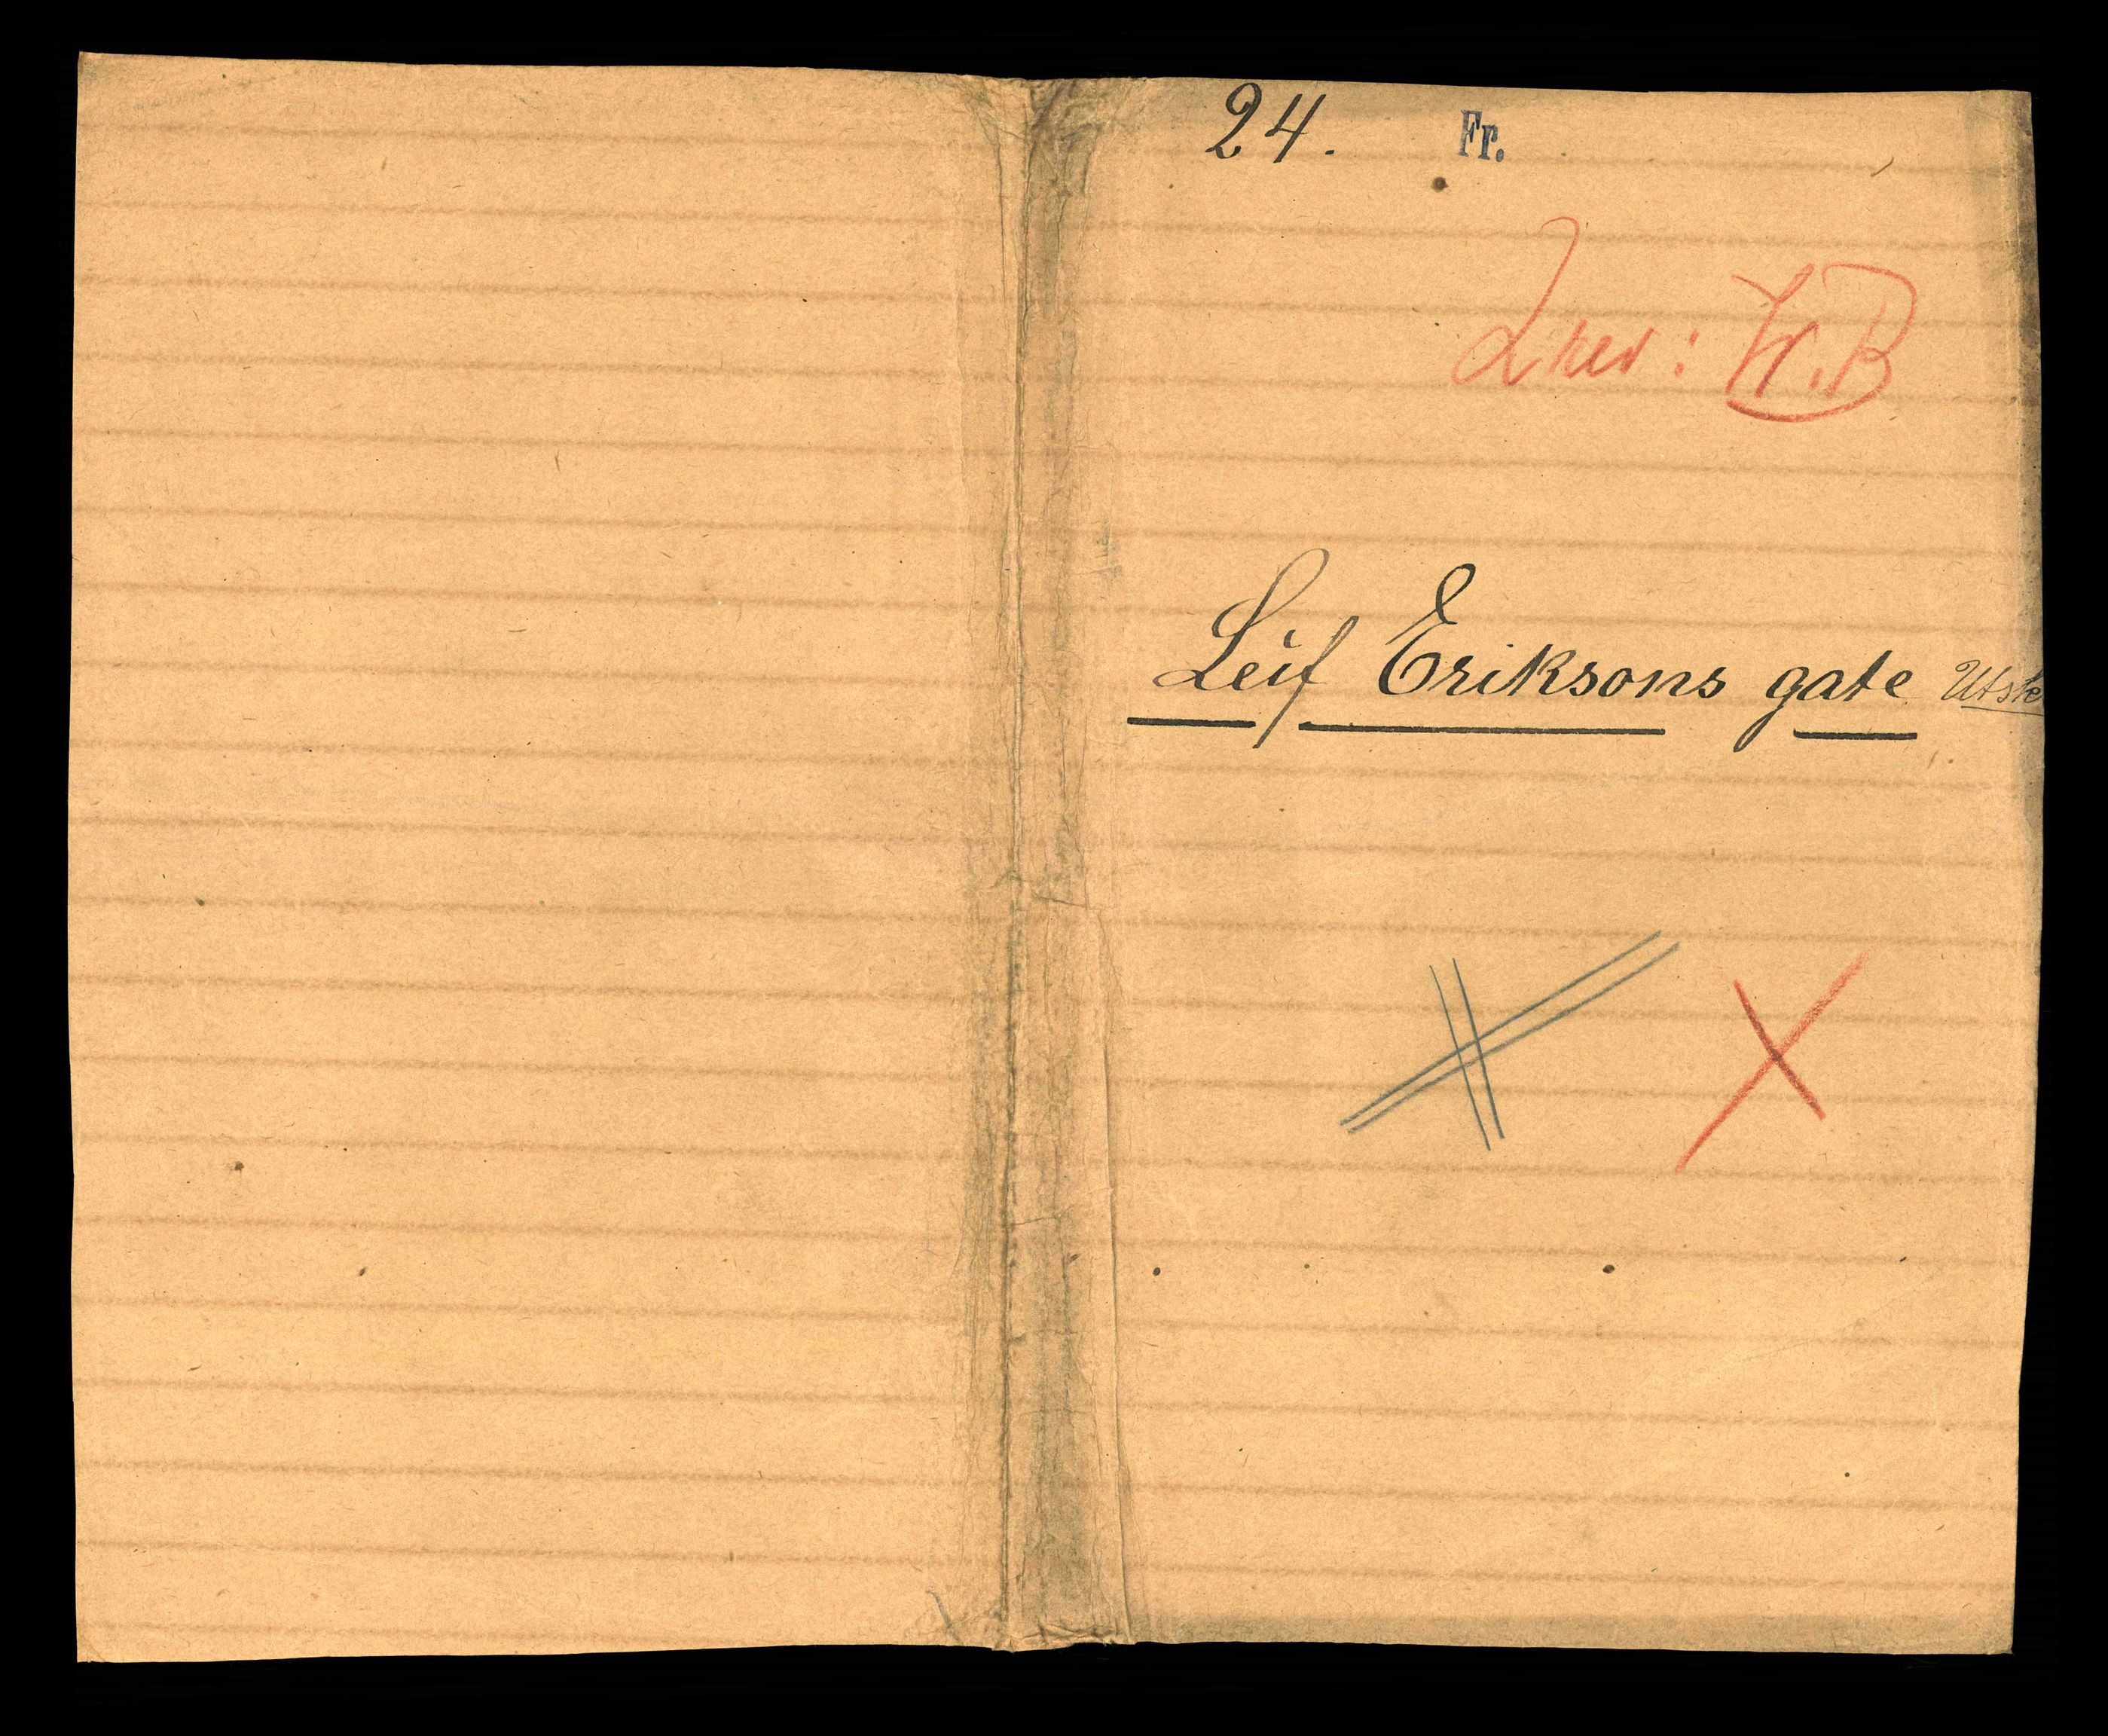 24. Fr.
Fr. B
Leif Eriksons gate Utsk